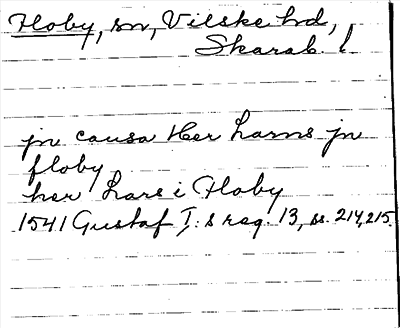 Floby, sn, Vilske hd,
Skarab. l.
jn causa Her Larns jn
floby
her Lars i Floby
1541 Gustaf I:s reg. 13, ss. 214, 215.